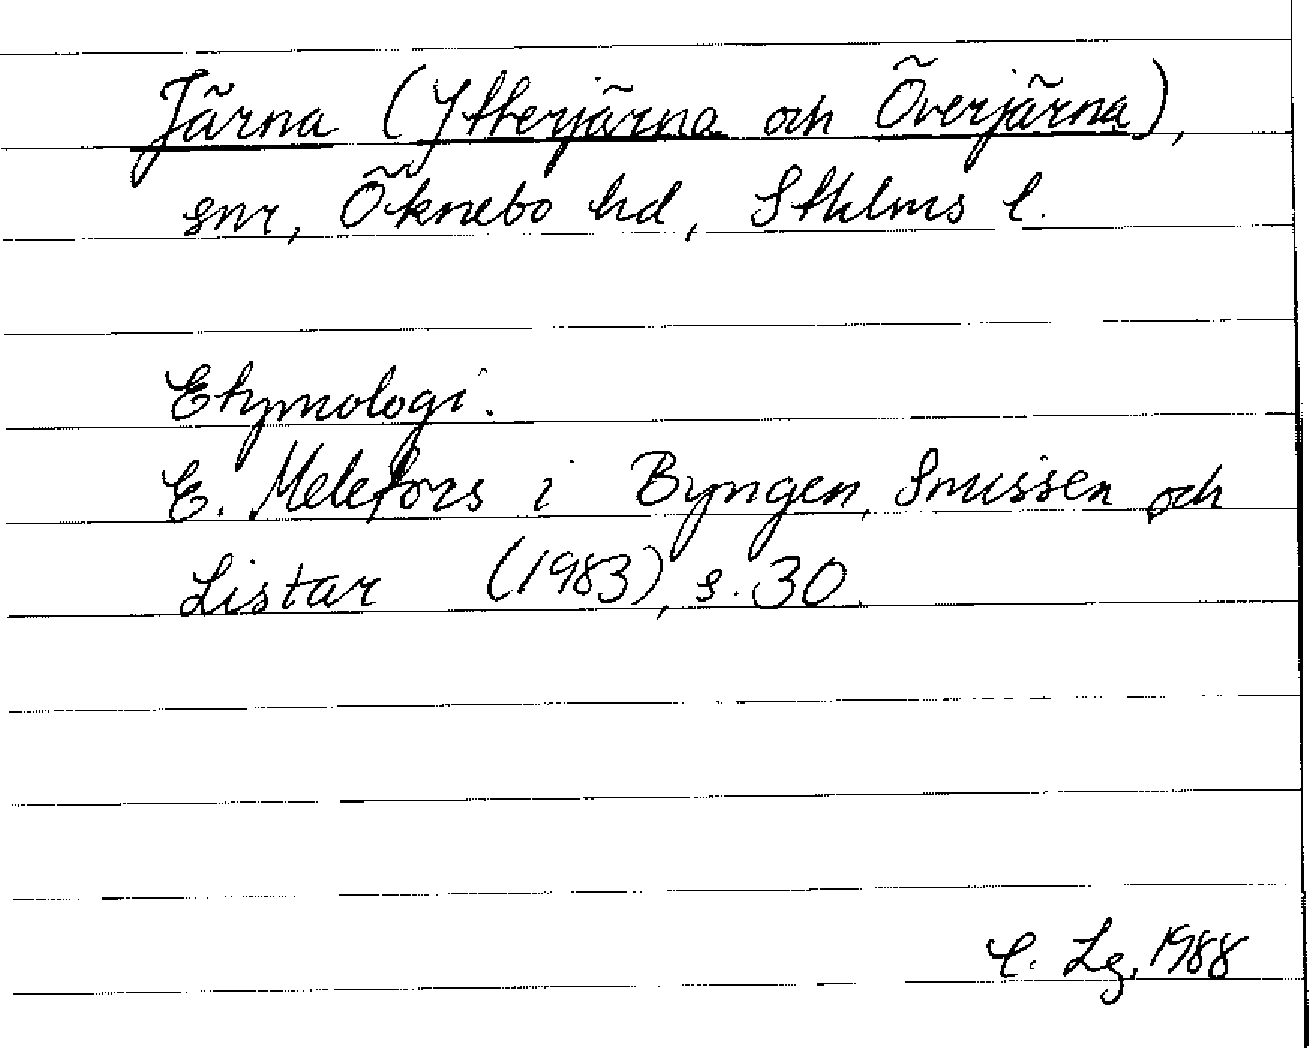 Järna (Ytterjärna och Överjärna),
snr, Öknebo hd, Sthlms l.
Etymologi.
E. Melefors i Byngen, Snussen och
Listar (1983), s. 30.
C. Lg, 1988